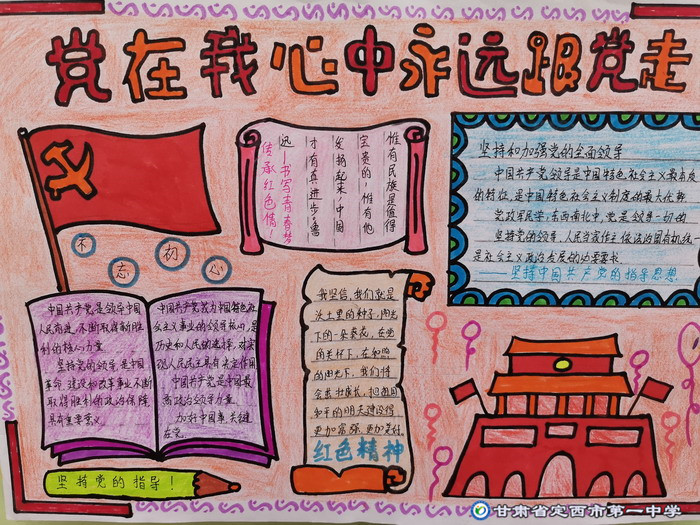 党在我心中永远跟党走
惟有民族是值得
宝贵的，惟有他
发扬起来，中国
才有真进步。鲁
迅—书写青春梦
传承红色情！
坚持和加强党的全面领导
中国共产党领导是中国特色社会主义最本质
的特征，是中国特色社会主义制度的最大优势
党政军民学，东西南北中，党是领导一切的
坚持党的领导、人民当家作主
是社会主义政治发展的必要要求
——坚持中国共产党的指导思想
不忘初心
中国共产党是领导中国
人民前进，不断取得新胜
利的核心力量
坚持党的领导，是中国
革命、建设和改革事业不断
取得胜利的政治保障
具有重要意义。
中国共产党成为中国特色社
会主义事业的领导核心，是
历史和人民的选择，对实
现人民民主具有决定作用
中国共产党是中国最
高政治领导力量
办好中国事，关键
在党。
我坚信，我们就是
沃土里的种子，阳光
下的一朵葵花，在党
的关怀下，在和煦
的阳光下，我们将
会茁壮成长，把祖国
和平的明天建设得
更加富强，更加美好
红色精神
坚持党的指导！
甘肃省定西市第一中学